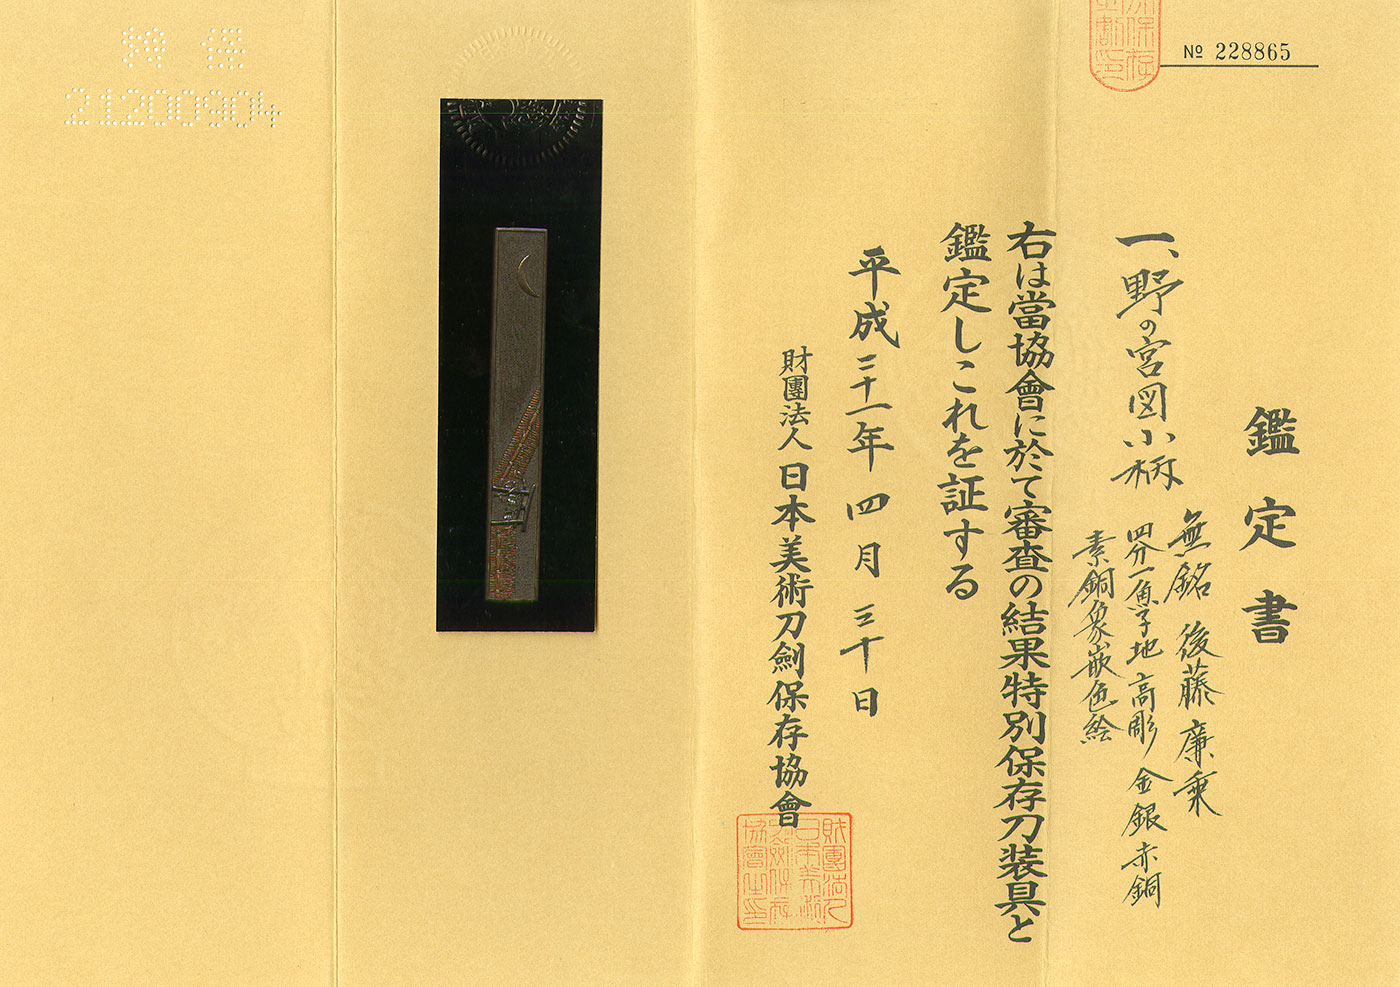 № 228865
鑑定書
一、野の宮図小柄
無銘 後藤廉乗
四分一魚子地 高彫 金銀赤銅
素銅象嵌色絵
右は當協會に於て審査の結果特別保存刀装具と
鑑定しこれを証する
平成二十一年 四月 三十日
財團法人 日本美術刀劍保存協會
財團法人
日本美術
刀劍保存
協會之印
特保
21200904